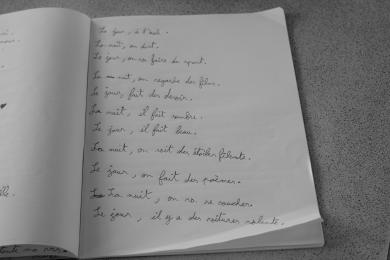 Le jour, à l'école.
La nuit, on dort.
Le jour, on va faire du sport.
La nuit, on regarde des films.
Le jour, fait des devoir.
La nuit, il fait sombre.
Le jour, il fait beau.
La nuit, on voit des étoiles filante.
Le jour, on fait des poèmes.
La nuit, on va se coucher.
Le jour, il y a des voitures volante.